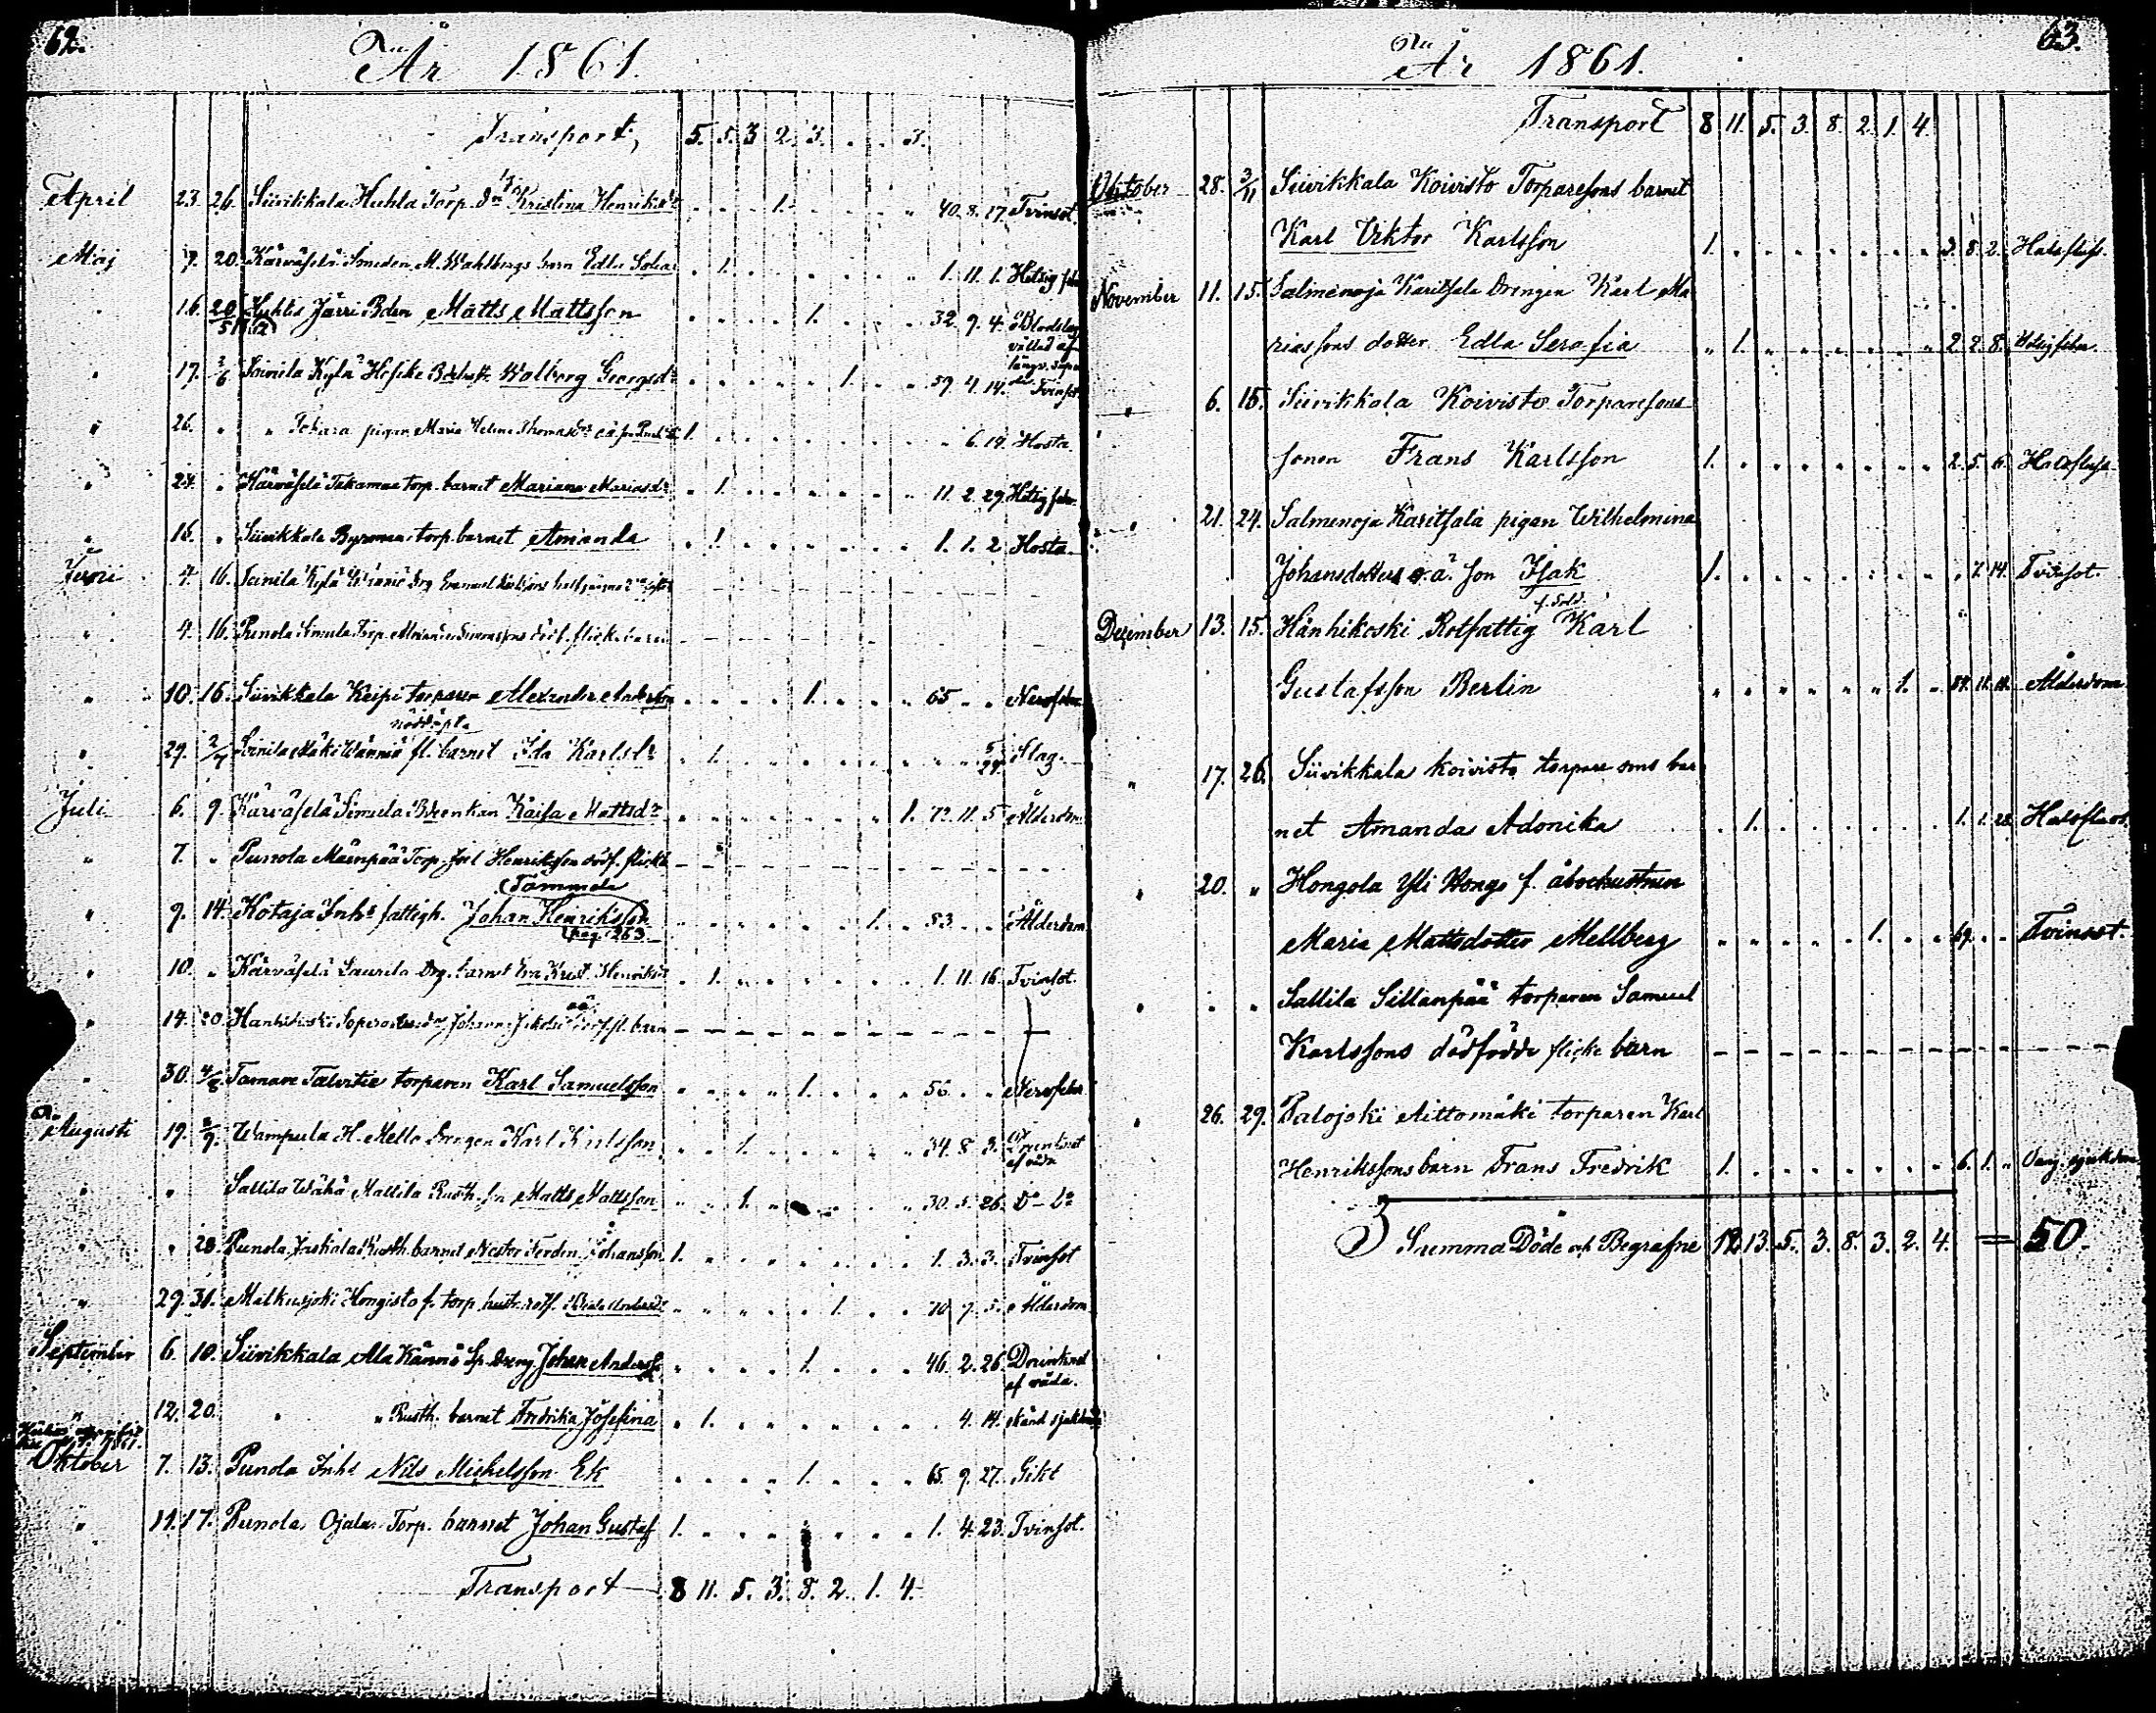 62.
År 1861.
Transport, 5. 5. 3 2. 3. . . 3.
April 23. 26. Siivikkala Huhla Torp. Kristina Henriksdr 1. 40. 8. 17. Tvinsot.
Maj 9. 20. Kärväselä Smeden M. Wahlbergs barn Edla 1. 1. 11. 1. Hetsig feber
" 16. 20/5 Huhtis Järri Bden Matts Mattsson 1. 32. 9. 4.
vållad af
" 17. 2/6 Soinila Kylä Heseke Walborg Georgsdr 1. 59. 4. 14. Tvinsot.
" 26. " " pigan Maria Helena Thomasdrs 1. 6. 19. Hosta.
" 24. " Kärväselä Takamaa torp. barnet Mariana Mariasdr 1. 11. 2. 29. Hetsig feber
" 15. " Siivikkala torp. barnet Amanda 1. 1. 1. 2 Hosta
Juni 4. 16. Soinila Kylä
" 4. 16. Punola Simula Torp. Simonssons dödf. flickebarn
" 10. 16. Siivikkala Keipi torparen Alexander Andersson 1. 65 . . Nervfeber
nöddöpta
" 29. 2/7 Soinila Mäki Wänniä fl. barnet Ida Karlsdr 1. 5/24 Slag.
Juli 6. 9. Kärväselä Simula Bdeenkan Kaisa Mattsdr 1. 72. 11. 5. Ålderdom
" 7. " Punola Mäenpää Torp. Joel Henriksson dödf. flickb.
(Tammela
" 9. 14. Kotoja Inhs fattigh. Johan Henriksson 1. 83 . . Ålderdom
pag. 263
" 10. " Kärväselä Laurila Drg. barnet Eva Krist. Henriksdr 1. 1. 11. 16. Tvinsot.
" 14. 20. Hanhikoski Johanna dödf. fl. barn
" 30. 4/8 Tamare Talvitie torparen Karl Samuelsson 1. 56 . . Nervfeber
Augusti 19. 2/9. Wampula H. Mello Drengen Karl Karlsson 1. 34. 8. 3. Drunknat
af våda
" " Sallila Wähä Mallila Rusth. son Matts Mattsson 1. 30. 5. 26. Do - Do
" " 28. Punola Yrskola Rusth. barnet Nestor Ferdin. Johansson 1. 1. 3. 3. Tvinsot
" 29. 31. Matkusjoki Hongisto f. torp. hustr. Andersdr 1. 70 7. 5. Ålderdom
September 6. 10. Siivikkala Ala Kännö Sp. dreng. Johan Anderss. 1. 46. 2. 26. Drunknat
af våda.
12. 20. " " Rusth. barnet Fredrika Josefina 1. 4. 14. okänd sjukdom
Oktober 7. 13. Punola Inhs Nils Michelsson Ek 1. 65. 9. 27. Gikt
" 14. 17. Punola Ojala Torp. barnet Johan Gustaf 1. 1. 4. 23. Tvinsot.
Transport 8 11. 5. 3. 8. 2. 1. 4.
63.
År 1861.
Transport 8 11. 5. 3. 8. 2. 1. 4.
Oktober 28. 3/11 Siivikkala Koivisto Torparesons barnet
Karl Viktor Karlsson 1. 3. 8. 2. Halsfluss.
November 11. 15. Salmenoja Karitsala Drengen Karl Ma
riassons dotter Edla Serafia 1. 2. 2. 8. Hetsig feber.
" 6. 15. Siivikkala Koivisto Torparesons
sonen Frans Karlsson 1. 2. 5. 6. Halsfluss.
" 21. 24. Salmenoja Karitsala pigan Wilhelmina
Johansdotters o. ä. son Isak 1. 7. 14. Tvinsot.
f. Sold.
December 13. 15. Hanhikoski Rotfattig Karl
Gustafsson Berlin 1. Ålderdom
" 17. 26. Siivikkala Koivisto torpare sons bar
net Amanda Adonika 1. 1. 1. 28. Halsfluss.
" 20. " Hongola Yli Hongo f. åbohustrun
Maria Mattsdotter Mellberg 1. 69. . . Tvinsot.
" . " Sallila Sillanpää torparen Samuel
Karlssons dödfödda flicke barn
" 26. 29. Palojoki Aittomäki torparen Karl
Henrikssons barn Frans Fredrik 1. 6. 1. " Oang. sjukdom
Summa Döde och Begrafne 12. 13. 5. 3. 8. 3. 2. 4. = 50.